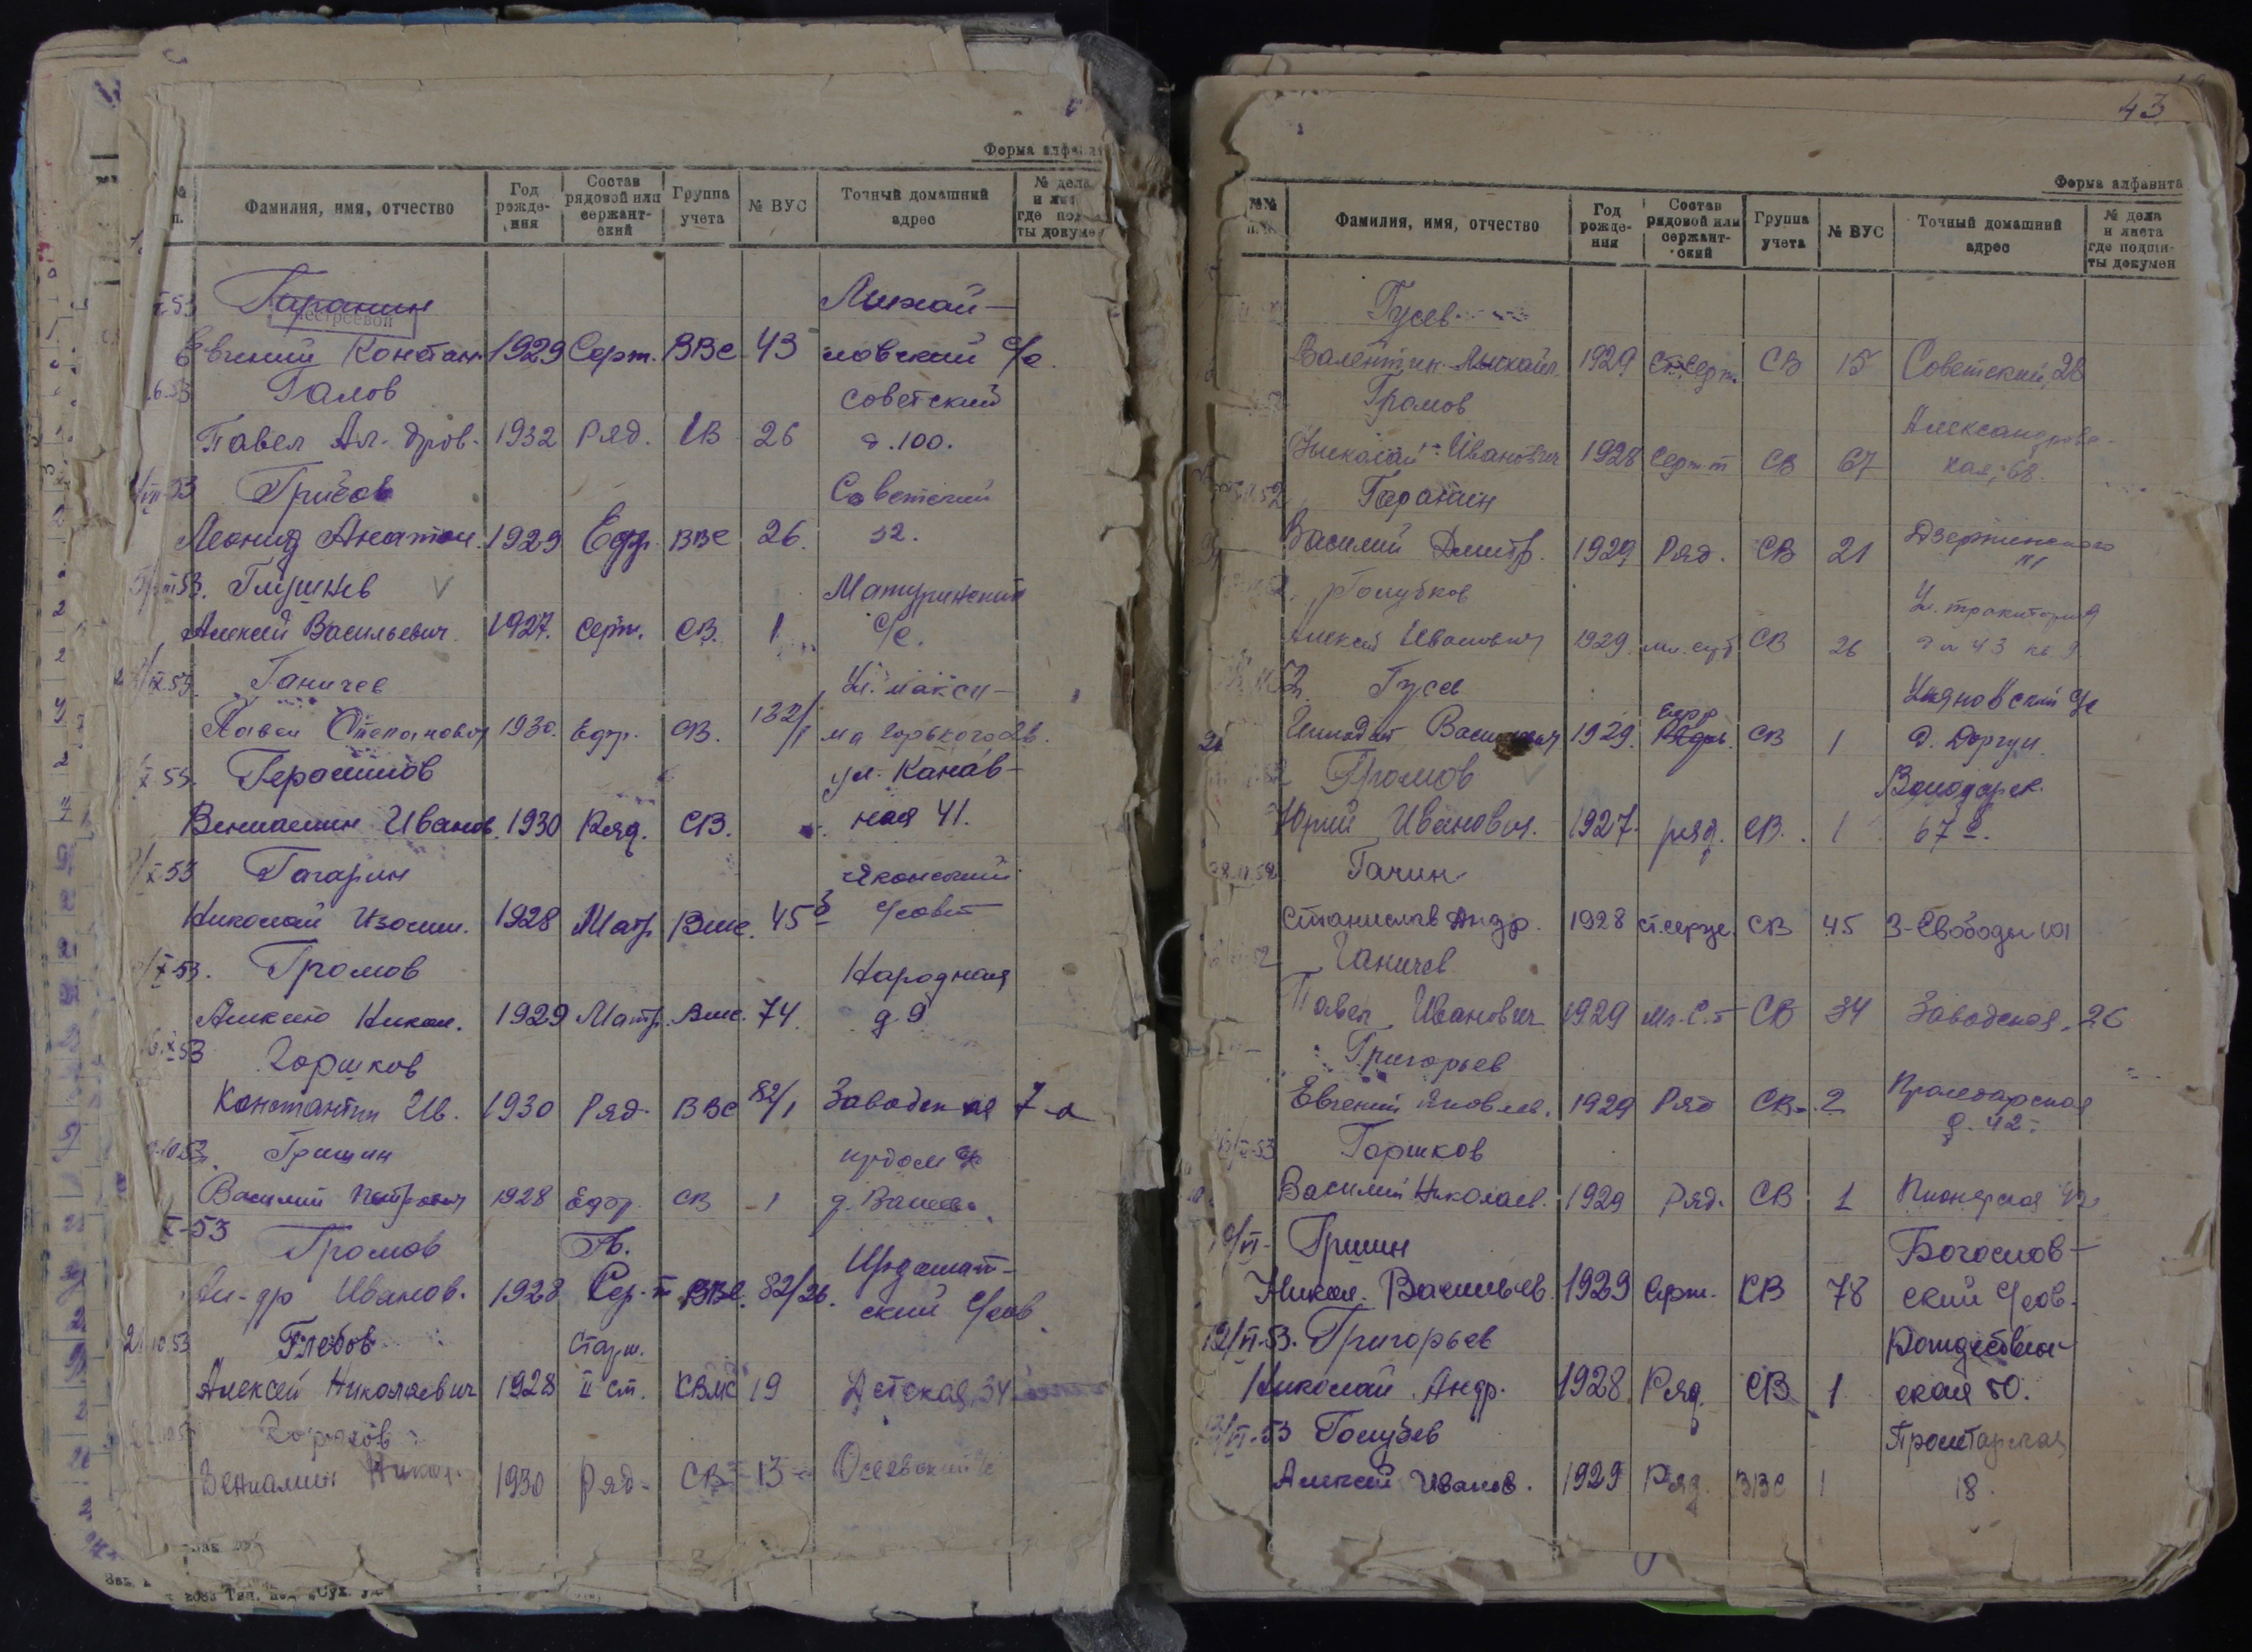 Форма алфави
Фамилия, имя, отчество
Год рожде- ния
Состав рядовой или сержант- ский
Группа учета
№ ВУС
Точный домашний адрес
№ дела и лис где под ты докуме
53 Гаранин Михай-
Евгений Констан. 1929 Серт. ВВС 43 ловский с/с.
6.53 Галов Советский
Павел Ал-дров. 1932 Ряд. СВ 26 д. 100.
53 Грибов Советский
Леонид Анатол. 1929 Ефр. ВВС 26. 52.
53. Глушнев Матуринский
Алексей Васильевич 1927. серж. СВ. 1 с/с.
IX.53. Ганичев Ул. Макси-
Павел Степанович 1930. Ефр. СВ. 132/1 ма Горького 26.
X 53. Герасимов ул. Канав-
Вениамин Иванов. 1930 Ряд. СВ. ная 41.
X 53 Гагарин
Николай Изосим. 1928 Матр. Вмс. 45 с/совет
X 53. Громов Народная
Алексей Никол. 1929 Матр. Вмс. 74. д 9
X 53 Горшков
Константин Ив. 1930 Ряд. ВВС 82/1 Заводская 7-а
10.53. Гришин
Василий Петрович 1928 Ефр. СВ 1
X-53 Громов Гв. Ирдомат-
Ал-др Иванов. 1928 Сер-т ВВС. 82/26. ский с/сов.
10.53 Глебов Старш.
Алексей Николаевич 1928 II ст. КВМС 19 Детская, 34
Вениамин Никол. 1930 Ряд- СВ- 13
43
Форма алфавита
№№ п.п.
Фамилия, имя, отчество
Год рожде- ния
Состав рядовой или сержант- ский
Группа учета
№ ВУС
Точный домашний адрес
№ дела и листа где подши- ты докумен
Гусев
Валентин Михайл. 1929 ст. серж. СВ 15 Советский, 28
Громов Александровс-
Николай Иванович 1928 Серж-т СВ 67 кая, 68.
52 Гаранин Дзержинского
Василий Дмитр. 1929 Ряд. СВ 21
Голубков
Алексей Иванович 1929. СВ 26
52. Гусев Ильяновский с/с
1929. Ефр СВ 1
Громов Володарск.
Юрий Иванович. 1927. ряд. СВ. 1 67
52 Гачин
Станислав Андр. 1928 ст. серж. СВ 45 З-Свободы 101
Ганичев
Павел Иванович 1929 Мл. С-т СВ 34 Заводская, 26
Григорьев Пролетарская
Евгений Яковлев. 1929 Ряд СВ- 2 д. 42
53 Горшков
Василий Николаев. 1929 Ряд. СВ 1 Пионерская
VI- Гришин Богослов-
Никол. Васильев. 1929 Серж. КВ 78 ский с/сов.
12/VI-53. Григорьев Рождествен-
Николай Андр. 1928 Ряд. СВ 1 ская 50.
VI-53 Голубев Пролетарская
Алексей Иванов. 1929 Ряд. ВВС 1 18.